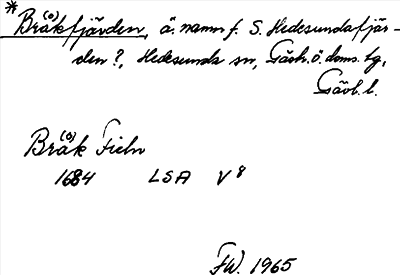 * Brå(ö)kfjärden, ä. namn f. S. Hedesundafjär-
den?, Hedesunda sn, Gästr. ö. doms. tg,
Gävl. l.
Brå(ö)k Fieln
1684 LSA V8
FW. 1965